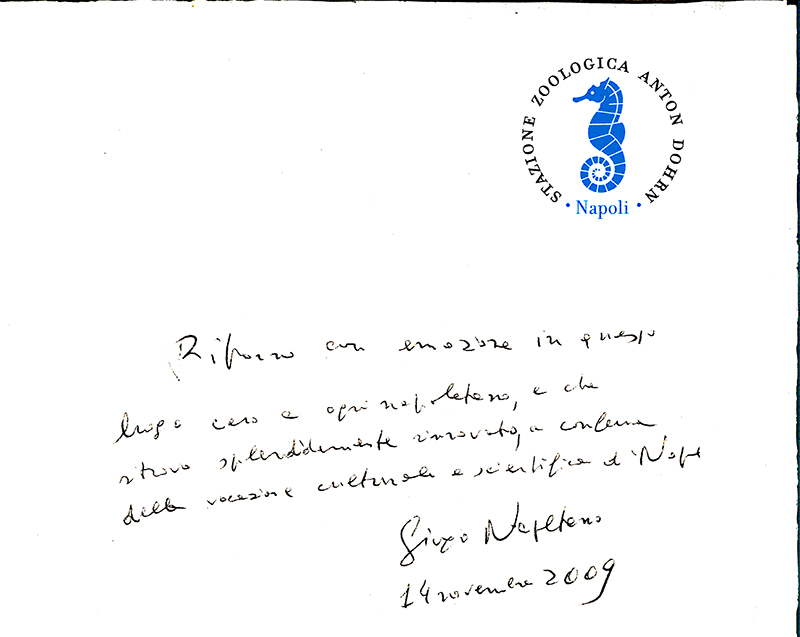 STAZIONE ZOOLOGICA ANTON DOHRN
· Napoli ·
Ritorno con emozione in questo
luogo caro a ogni napoletano, e che
ritrovo splendidamente rinnovato, a conferma
della vocazione culturale e scientifica di Napoli
Giorgio Napolitano
14 novembre 2009